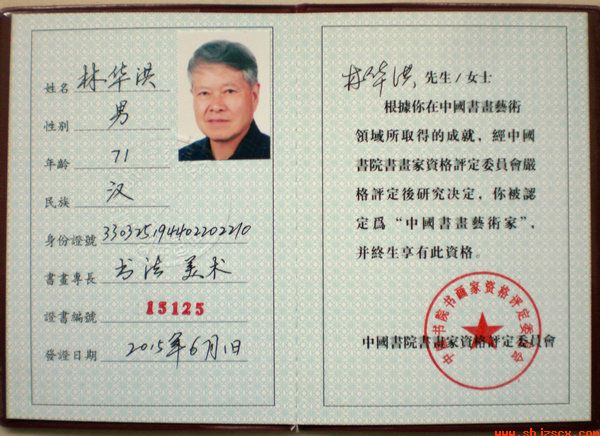 姓名 林华洪
性别 男
年齡 71
民族 汉
身份證號 330325194402202210
書畫專長 书法 美术
證書編號 15125
發證日期 2015年6月1日
林华洪 先生/女士
根據你在中國書畫藝術
領域所取得的成就，經中國
書院書畫家資格評定委員會嚴
格評定後研究决定，你被認
定爲“中國書畫藝術家”，
并終生享有此資格。
中國書院書畫家資格評定委員會
中国书院书画家资格评定委员会
www.shizscx.com